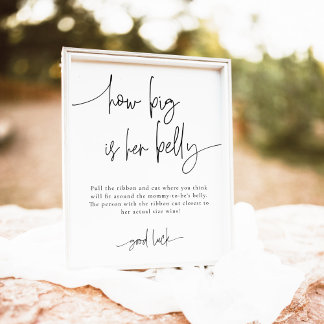 how big
is her belly
Pull the ribbon and cut where you think
will fit around the mommy-to-be's belly.
The person with the ribbon cut closest to
her actual size wins!
good luck